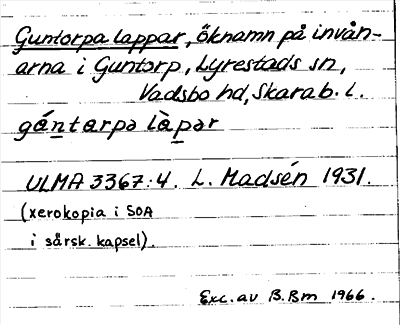 Guntorpa lappar, öknamn på invån-
arna i Guntorp, Lyrestads sn,
Vadsbo hd, Skarab. l.
gántarpə làpər
ULMA 3367:4. L. Madsén 1931.
(xerokopia i SOA
i särsk. kapsel).
Exc. av B.Bm 1966.